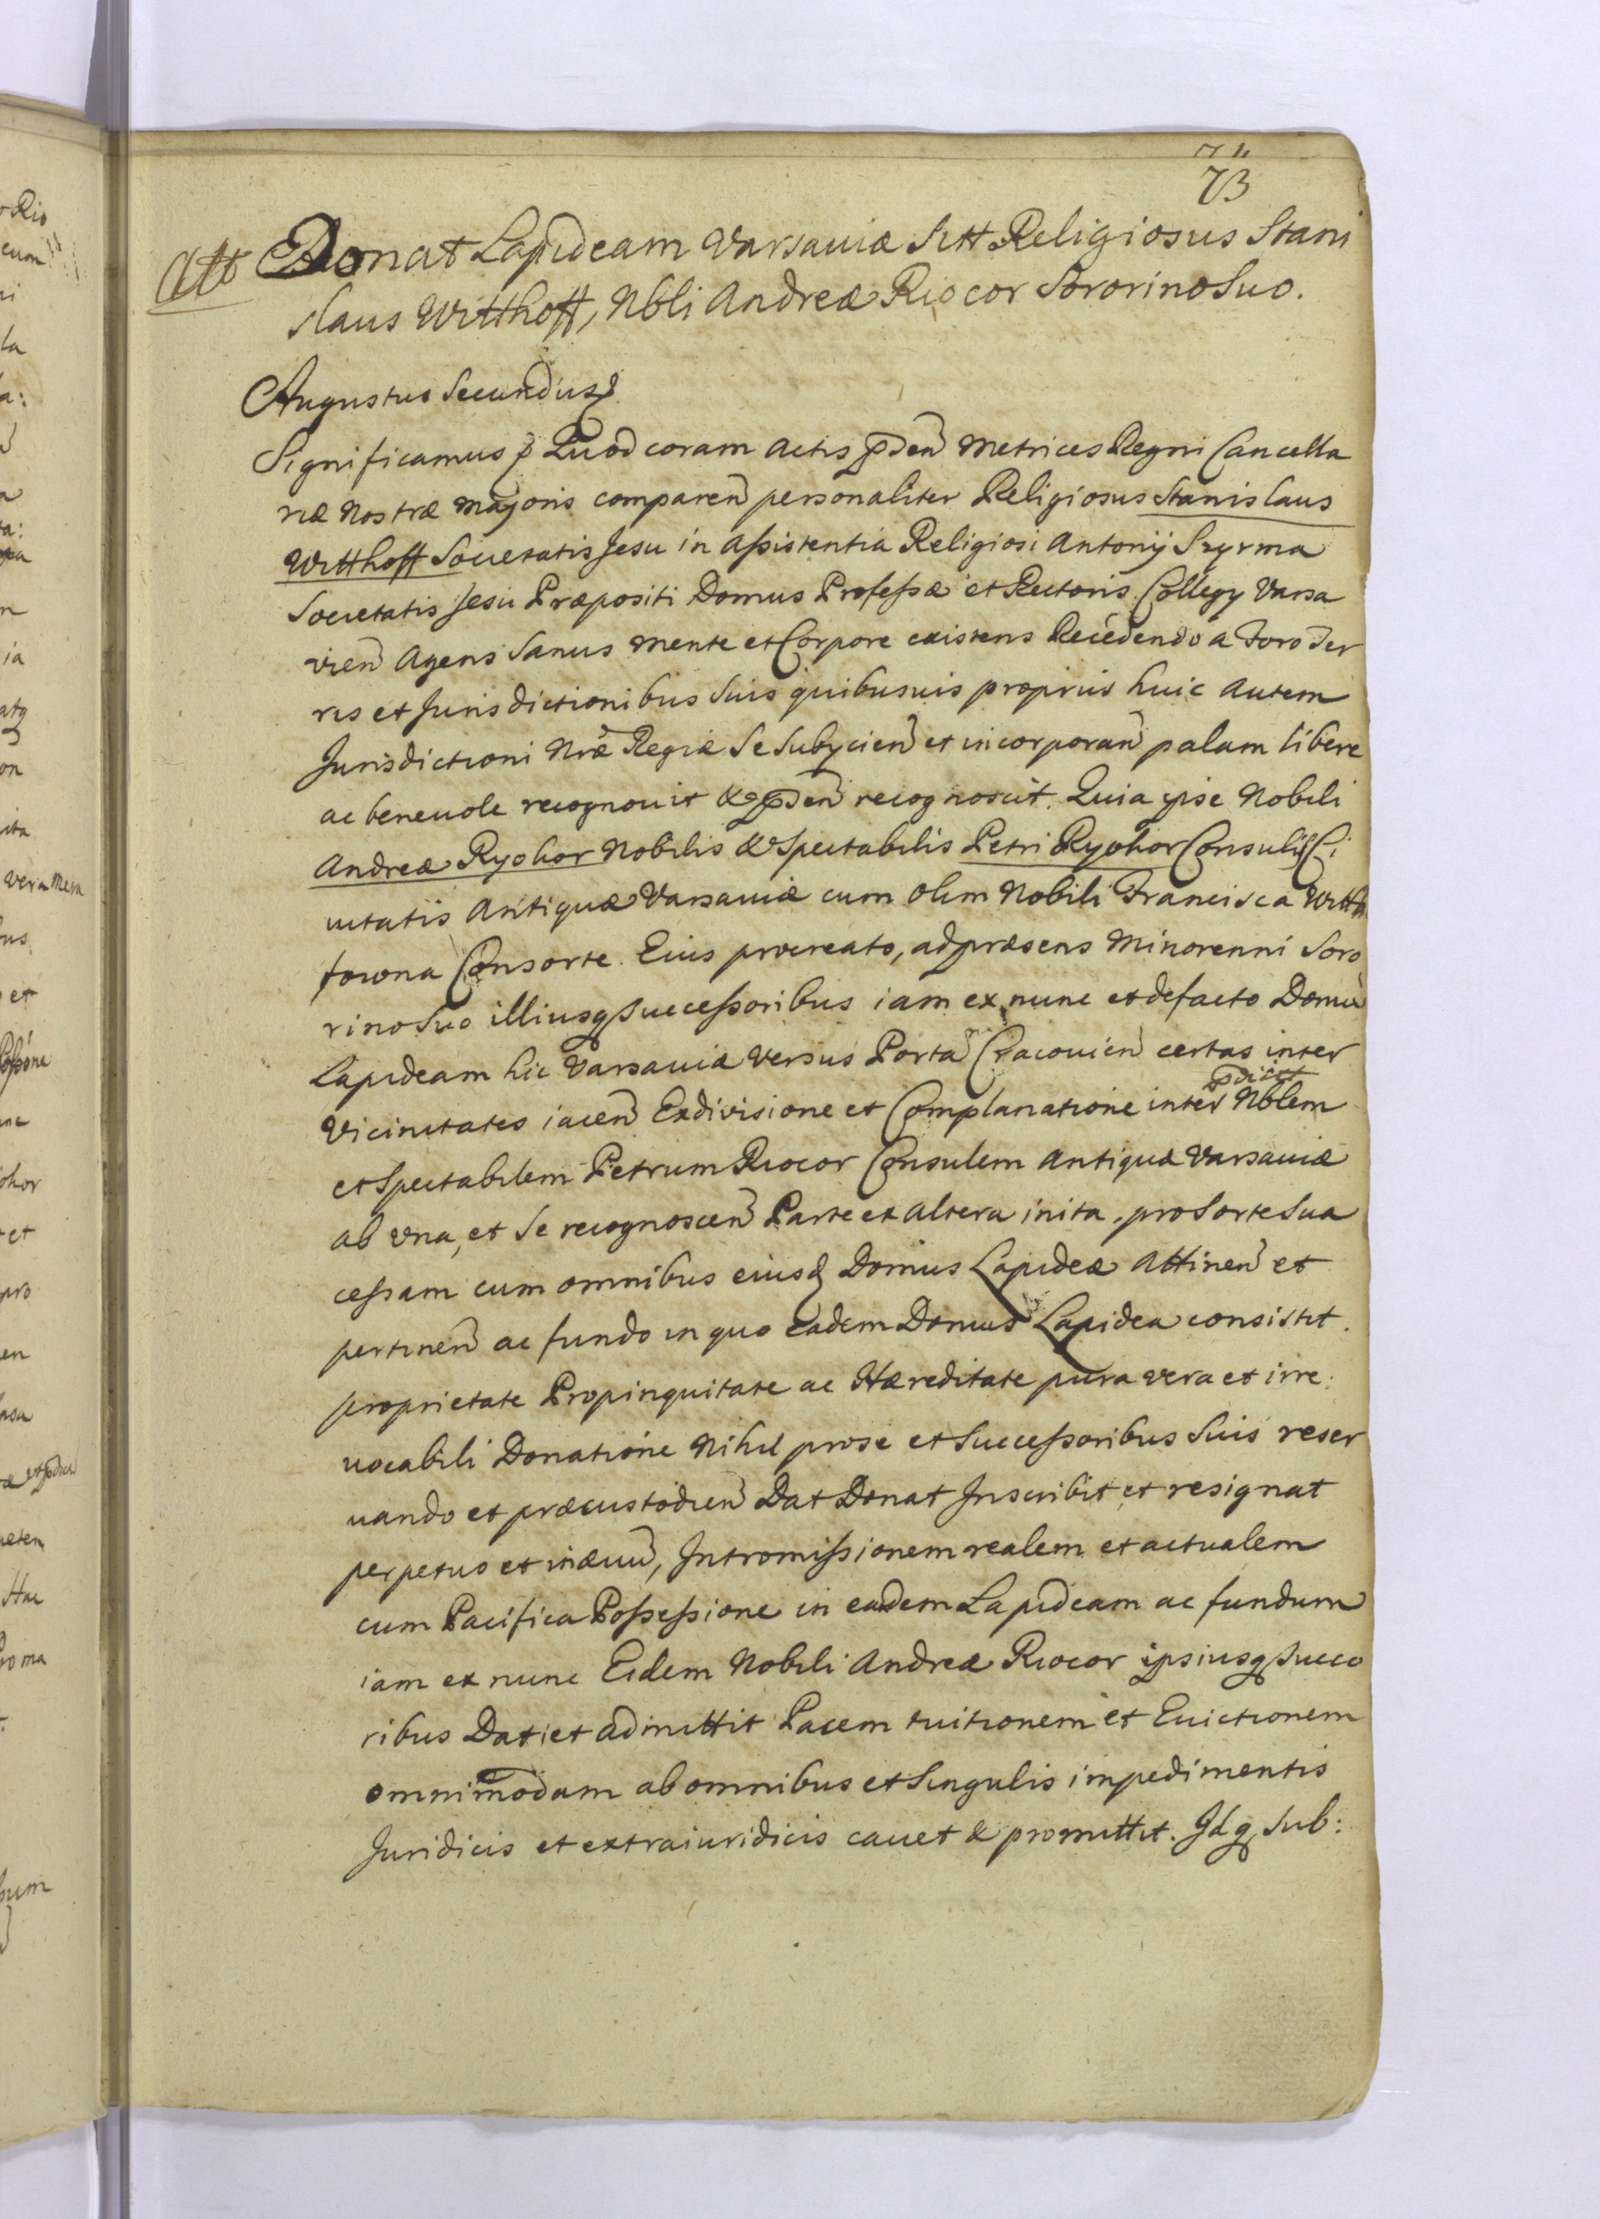 73
Att Donat Lapideam Varsaviæ Sitt Religiosus Stani
slaus Witthoff, Nbli Andreæ Riocor Sororino Suo.
Augustus Secundus
Significamus Quod coram Actis pñden Metrices Regni Cancella
riæ Nostræ Majoris comparen personaliter Religiosus Stanislaus
Witthoff Societatis Jesu in Aßistentia Religiosi Antonij Szyrma
Societatis Jesu Præpositi Domus Profeßæ et Rectoris Collegy Varsa
vien Agens Sanus Mente et Corpore existens Recedendo a Foro Ter
ris et Jurisdictionibus Suis quibusuis proprius huic Autem
Jurisdictioni Nræ Regiæ Se Subycien et incorporan palam libere
ac beneuole recognouit & pñden recognoscit. Quia ipse Nobili
Andreæ Ryohor Nobilis & Spectabilis Petri Ryohor Consulis Ci
uitatis Antiquæ Varsauiæ cum Olim Nobili Francisca Witth
fowna Consorte Eius procreato, ad præsens Minorenni Soro
rino Suo illiusq Succeßoribus iam ex nunc et de facto Domu
Lapideam hic Varsauiæ versus Porta Cracouien certas inter
Vicinitates iacen Ex divisione et Complanatione inter pdict Nblem
et Spectabilem Petrum Riocor Consulem Antiquæ Varsauiæ
ab Una, et Se recognoscen Parte ex Altera inita, pro Sorte Sua
ceßam cum omnibus eiusd Domus Lapideæ Attinen et
pertinen ac fundo in quo eadem Domus Lapidea consistit.
proprietate Propinquitate ac Hæreditate pura vera et irre:
uocabili Donatione Nihil pro se et Succeßoribus Suis reser
uando et præcustodien Dat Donat Inscribit et resignat
perpetuo et in æuu, Intromißionem realem et actualem
cum Pacifica Poßeßione in eandem Lapideam ac fundum
iam ex nunc Eidem Nobili Andreæ Riocor ipsiusq Succo
ribus Dat et admittit Pacem tuitionem et Euictionem
omnimodam ab omnibus et Singulis impedimentis
Juridicis et extraiuridicis cauet & promittit. Idq Sub: